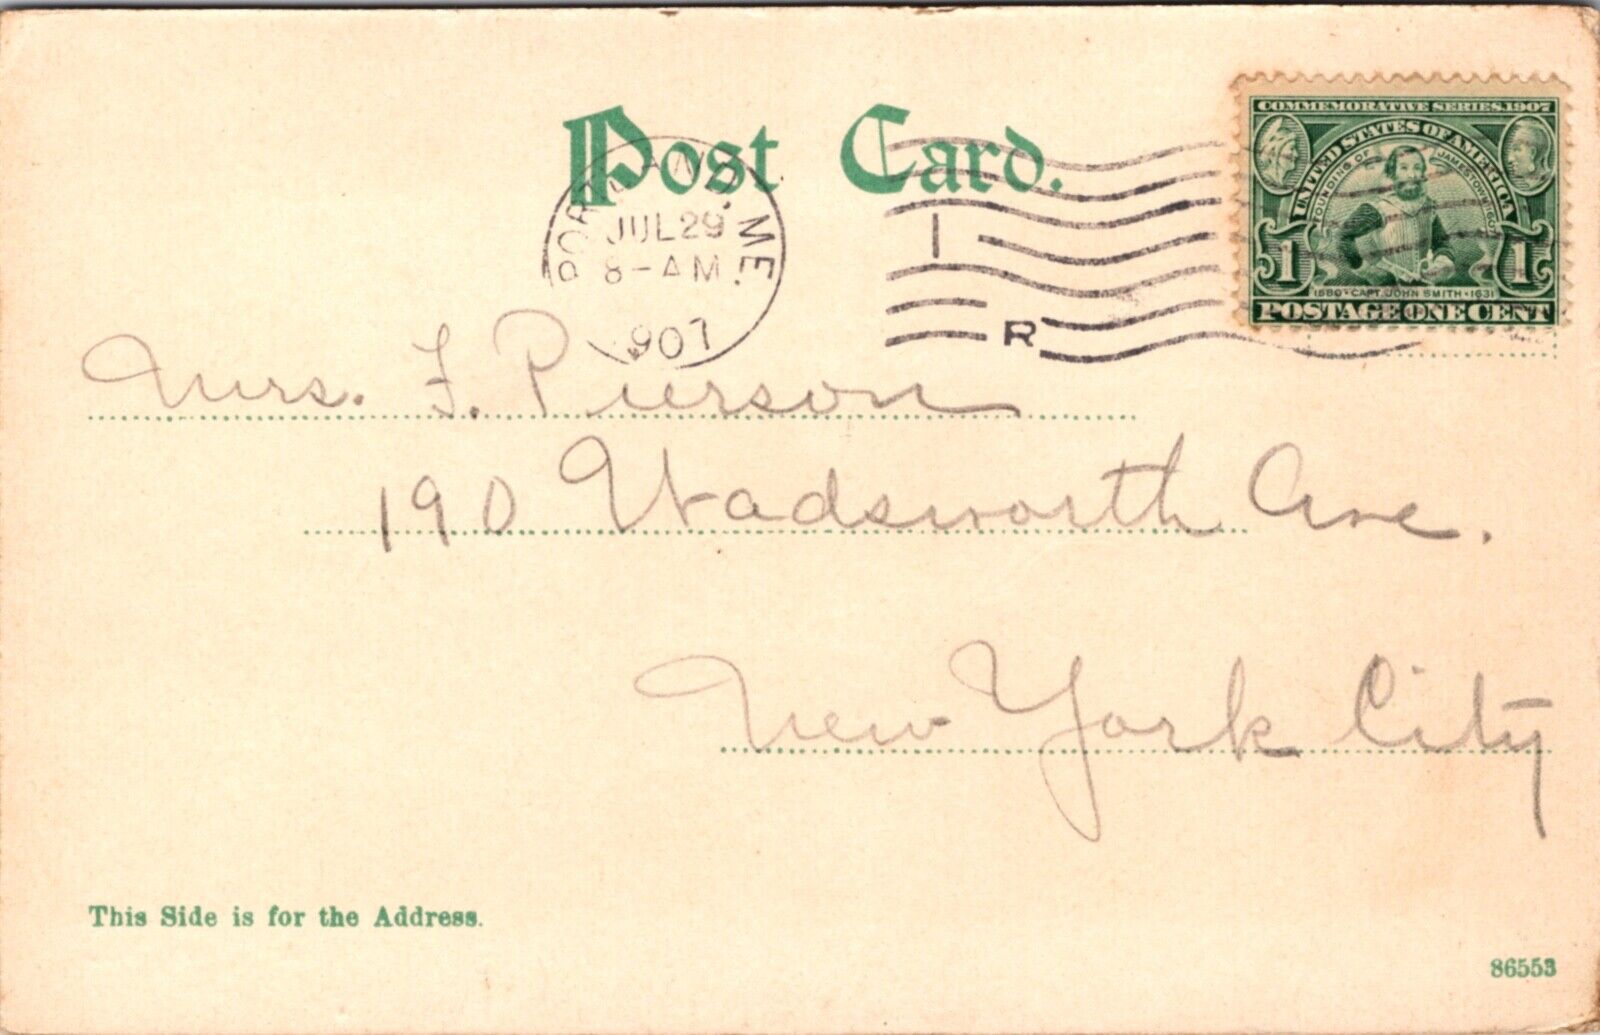 Post Card.
PORTLAND, ME.
JUL 29
8-AM
1907
1
R
COMMEMORATIVE SERIES, 1907
UNITED STATES OF AMERICA
FOUNDING OF JAMESTOWN 1607
1 1
1580 · CAPT. JOHN SMITH · 1631
POSTAGE ONE CENT
Mrs. F. Pierson
190 Wadsworth Ave.
New York City
This Side is for the Address.
86553